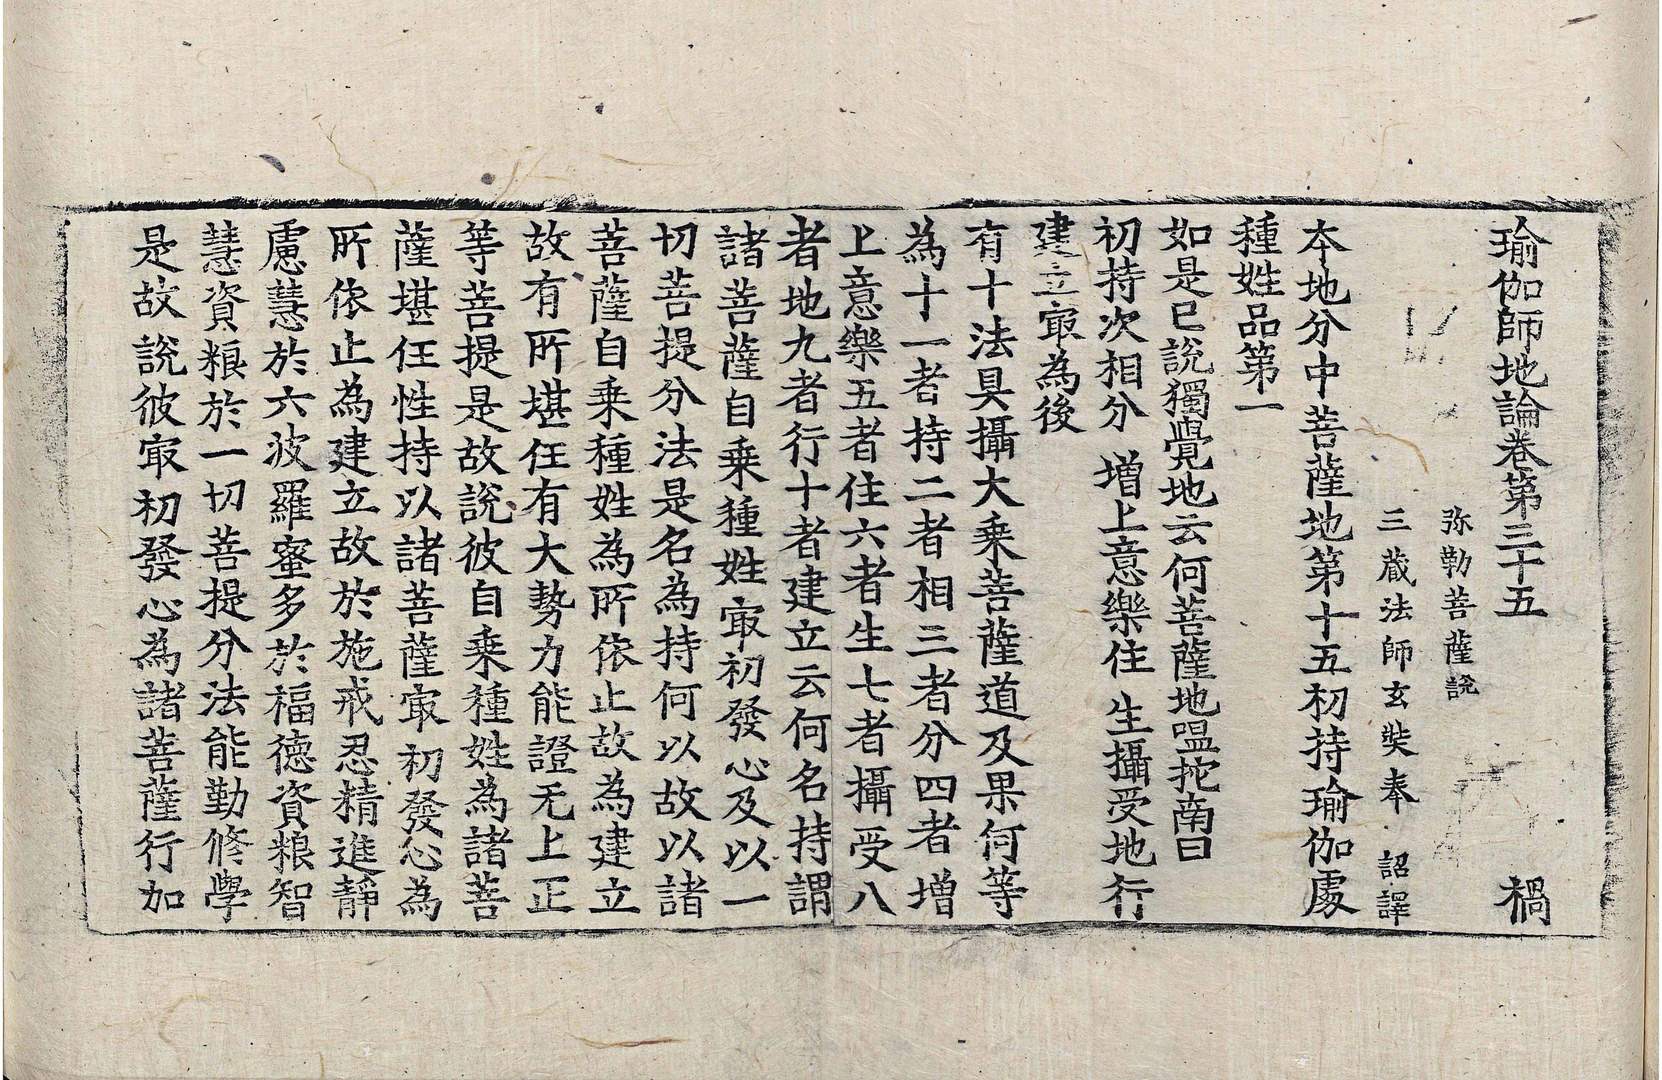 瑜伽師地論卷第三十五 禍
弥勒菩薩說
三藏法師玄奘奉 詔譯
本地分中菩薩地第十五初持瑜伽處
種姓品第一
如是已說獨覺地云何菩薩地嗢拕南曰
初持次相分 增上意樂住 生攝受地行
建立㝡為後
有十法具攝大乘菩薩道及果何等
為十一者持二者相三者分四者增
上意樂五者住六者生七者攝受八
者地九者行十者建立云何名持謂
諸菩薩自乘種姓㝡初發心及以一
切菩提分法是名為持何以故以諸
菩薩自乘種姓為所依止故為建立
故有所堪任有大勢力能證无上正
等菩提是故說彼自乘種姓為諸菩
薩堪任性持以諸菩薩㝡初發心為
所依止為建立故於施戒忍精進靜
慮慧於六波羅蜜多於福德資粮智
慧資粮於一切菩提分法能勤修學
是故說彼㝡初發心為諸菩薩行加